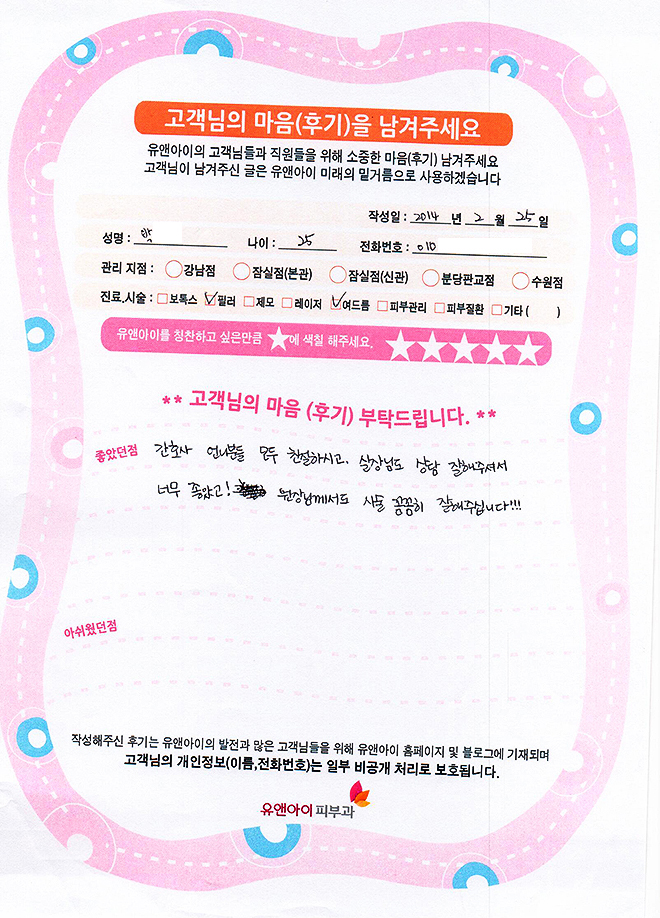 고객님의 마음(후기)을 남겨주세요
유앤아이의 고객님들과 직원들을 위해 소중한 마음(후기) 남겨주세요
고객님이 남겨주신 글은 유앤아이 미래의 밑거름으로 사용하겠습니다
작성일 : 2014 년 2 월 25 일
성명 : 박 나이 : 25 전화번호 : 010
관리 지점 : 강남점 잠실점(본관) 잠실점(신관) 분당판교점 수원점
진료.시술 : 보톡스 필러 제모 레이저 여드름 피부관리 피부질환 기타 ( )
유앤아이를 칭찬하고 싶은만큼 ★에 색칠 해주세요. ★★★★★
** 고객님의 마음 (후기) 부탁드립니다. **
좋았던점 간호사 언니분들 모두 친절하시고, 실장님도 상담 잘해주셔서
너무 좋았고! 원장님께서도 시술 꼼꼼히 잘해주십니다!!!
아쉬웠던점
작성해주신 후기는 유앤아이의 발전과 많은 고객님들을 위해 유앤아이 홈페이지 및 블로그에 기재되며
고객님의 개인정보(이름,전화번호)는 일부 비공개 처리로 보호됩니다.
유앤아이 피부과